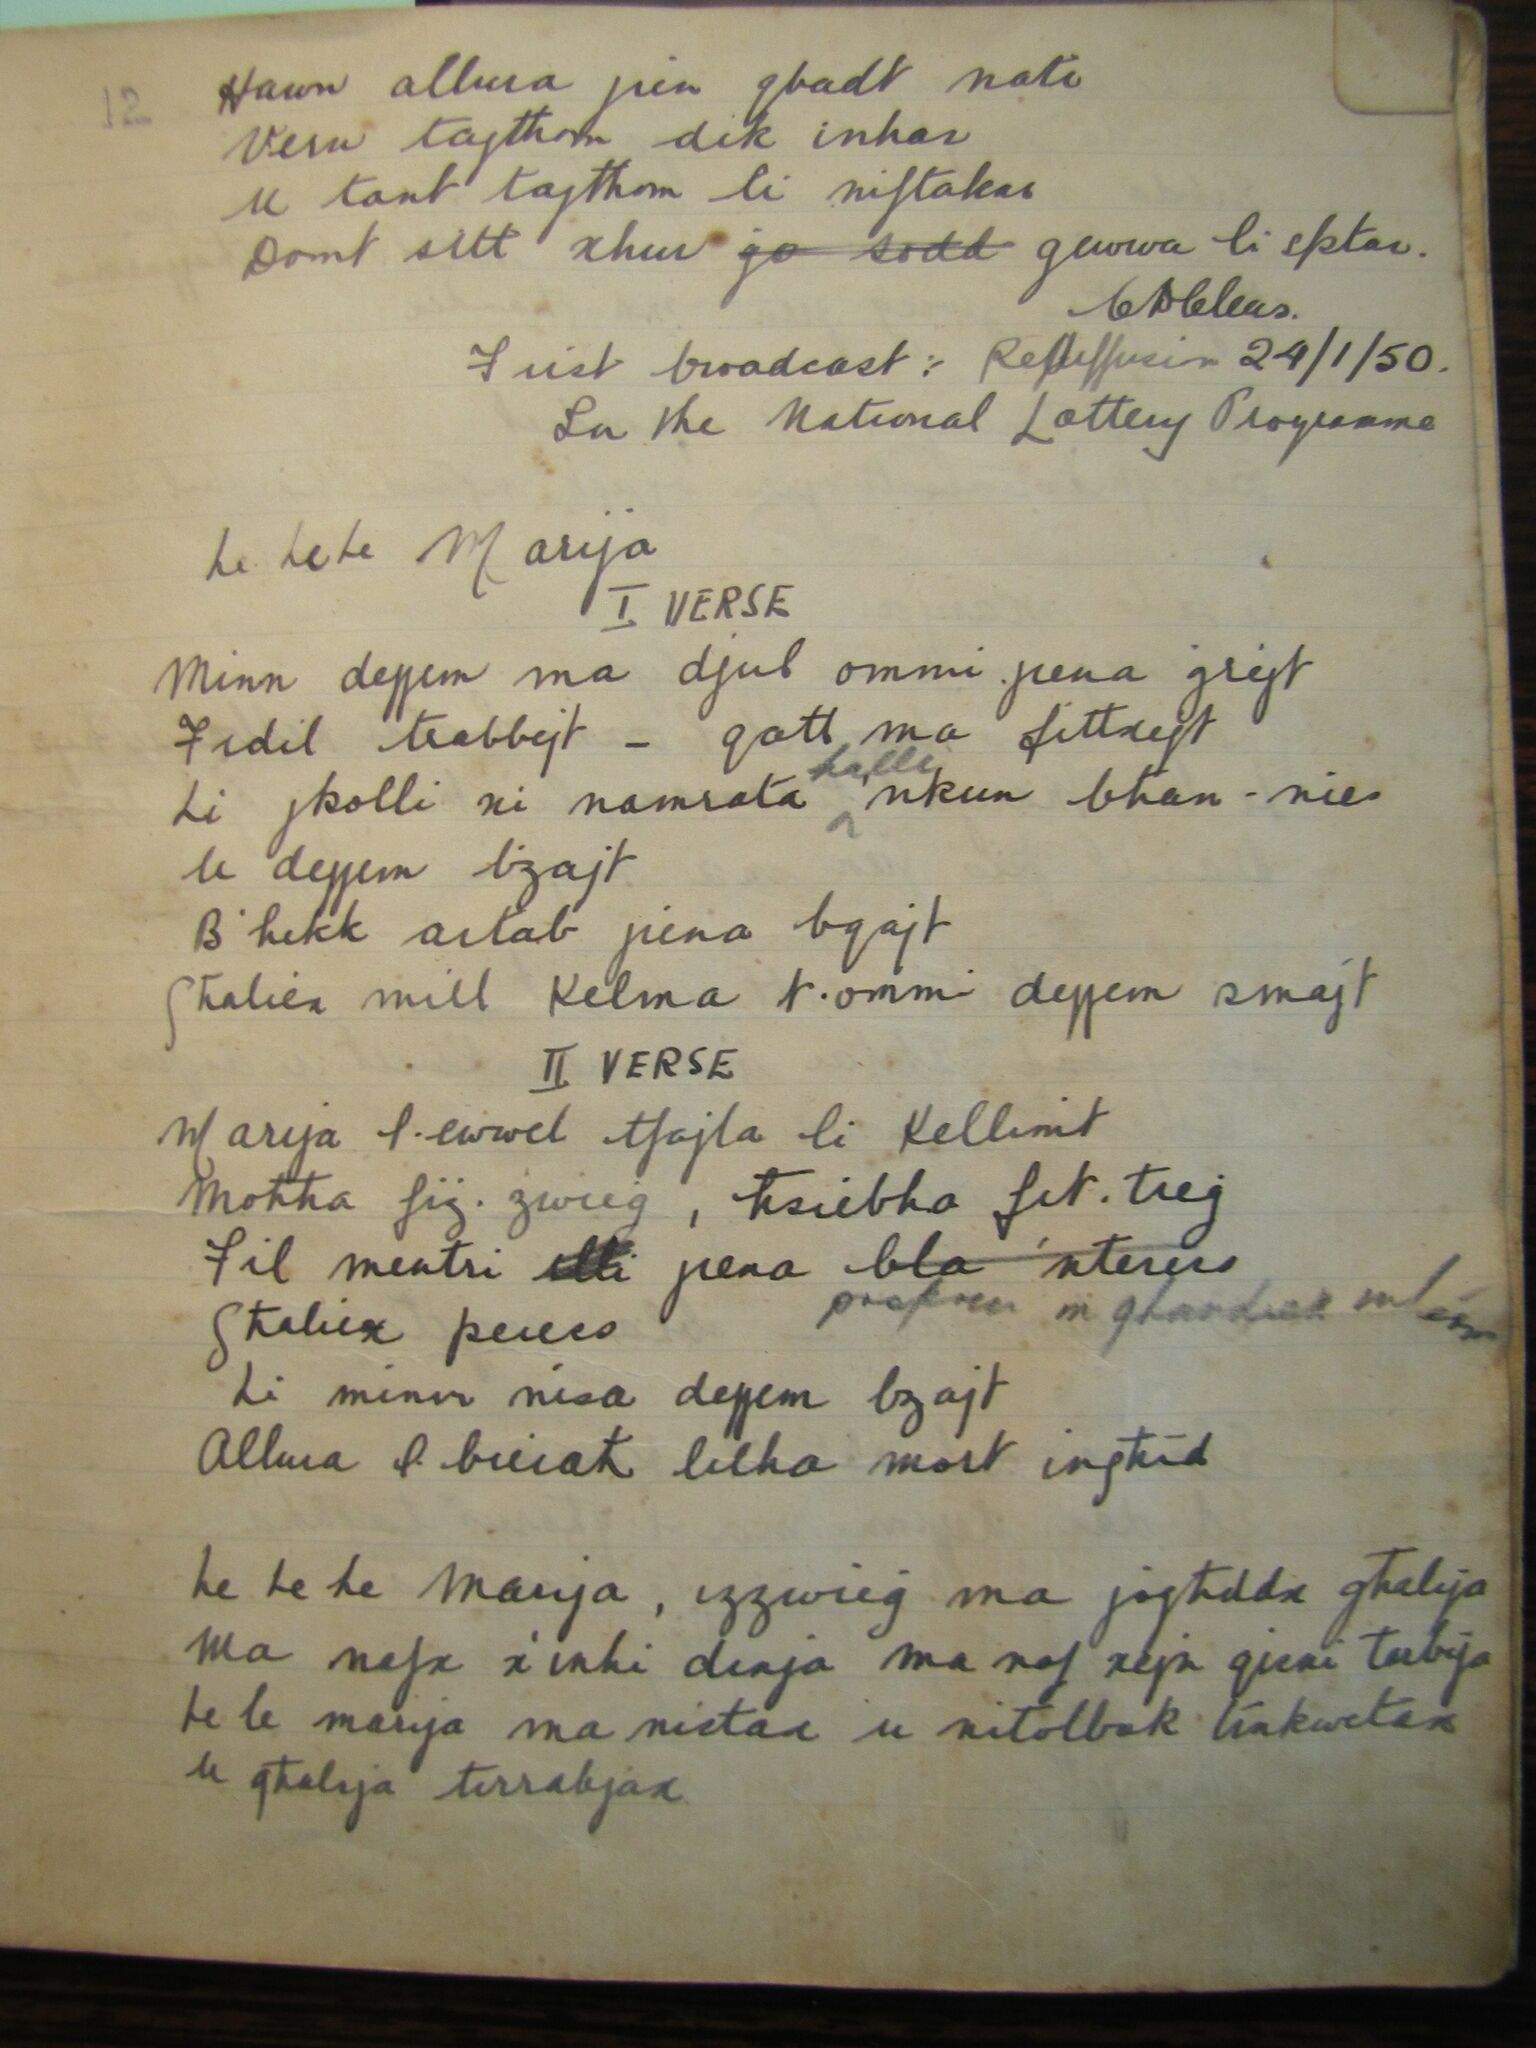 12
Hawn allura jien qbadt nati
Veru tajthom dik inhar
U tant tajthom li niftakar
Domt sitt xhur go sodd gewwa li sptar.
First broadcast: Rediffusion 24/1/50.
In the National Lottery Programme
Le le le Marija
I VERSE
Minn dejjem ma djul ommi jiena ġrejt
Fidil trabbejt - qatt ma fittxejt
Li jkolli xi namrata ħalli nkun bħan-nies
U dejjem bzajt
B'hekk orlab jiena bqajt
Għaliex mill kelma t.ommi dejjem smajt
II VERSE
Marija l.ewwel tfajla li kellimt
Moħħa fiż.zwieġ, ħsiebha fit.tieġ
Fil mentri illi jiena bla nteress
għandiex
Għaliex peress
Li minn nisa dejjem bzajt
Allura l.bieraħ lilha mort ingħid
Le le le Marija, izzwieġ ma jogħddx għalija
Ma nafx x'inhi dinja ma naf xejn qieni tarbija
Le le marija ma nistax u nitolbok tinkwetax
U għalija tirrabjax